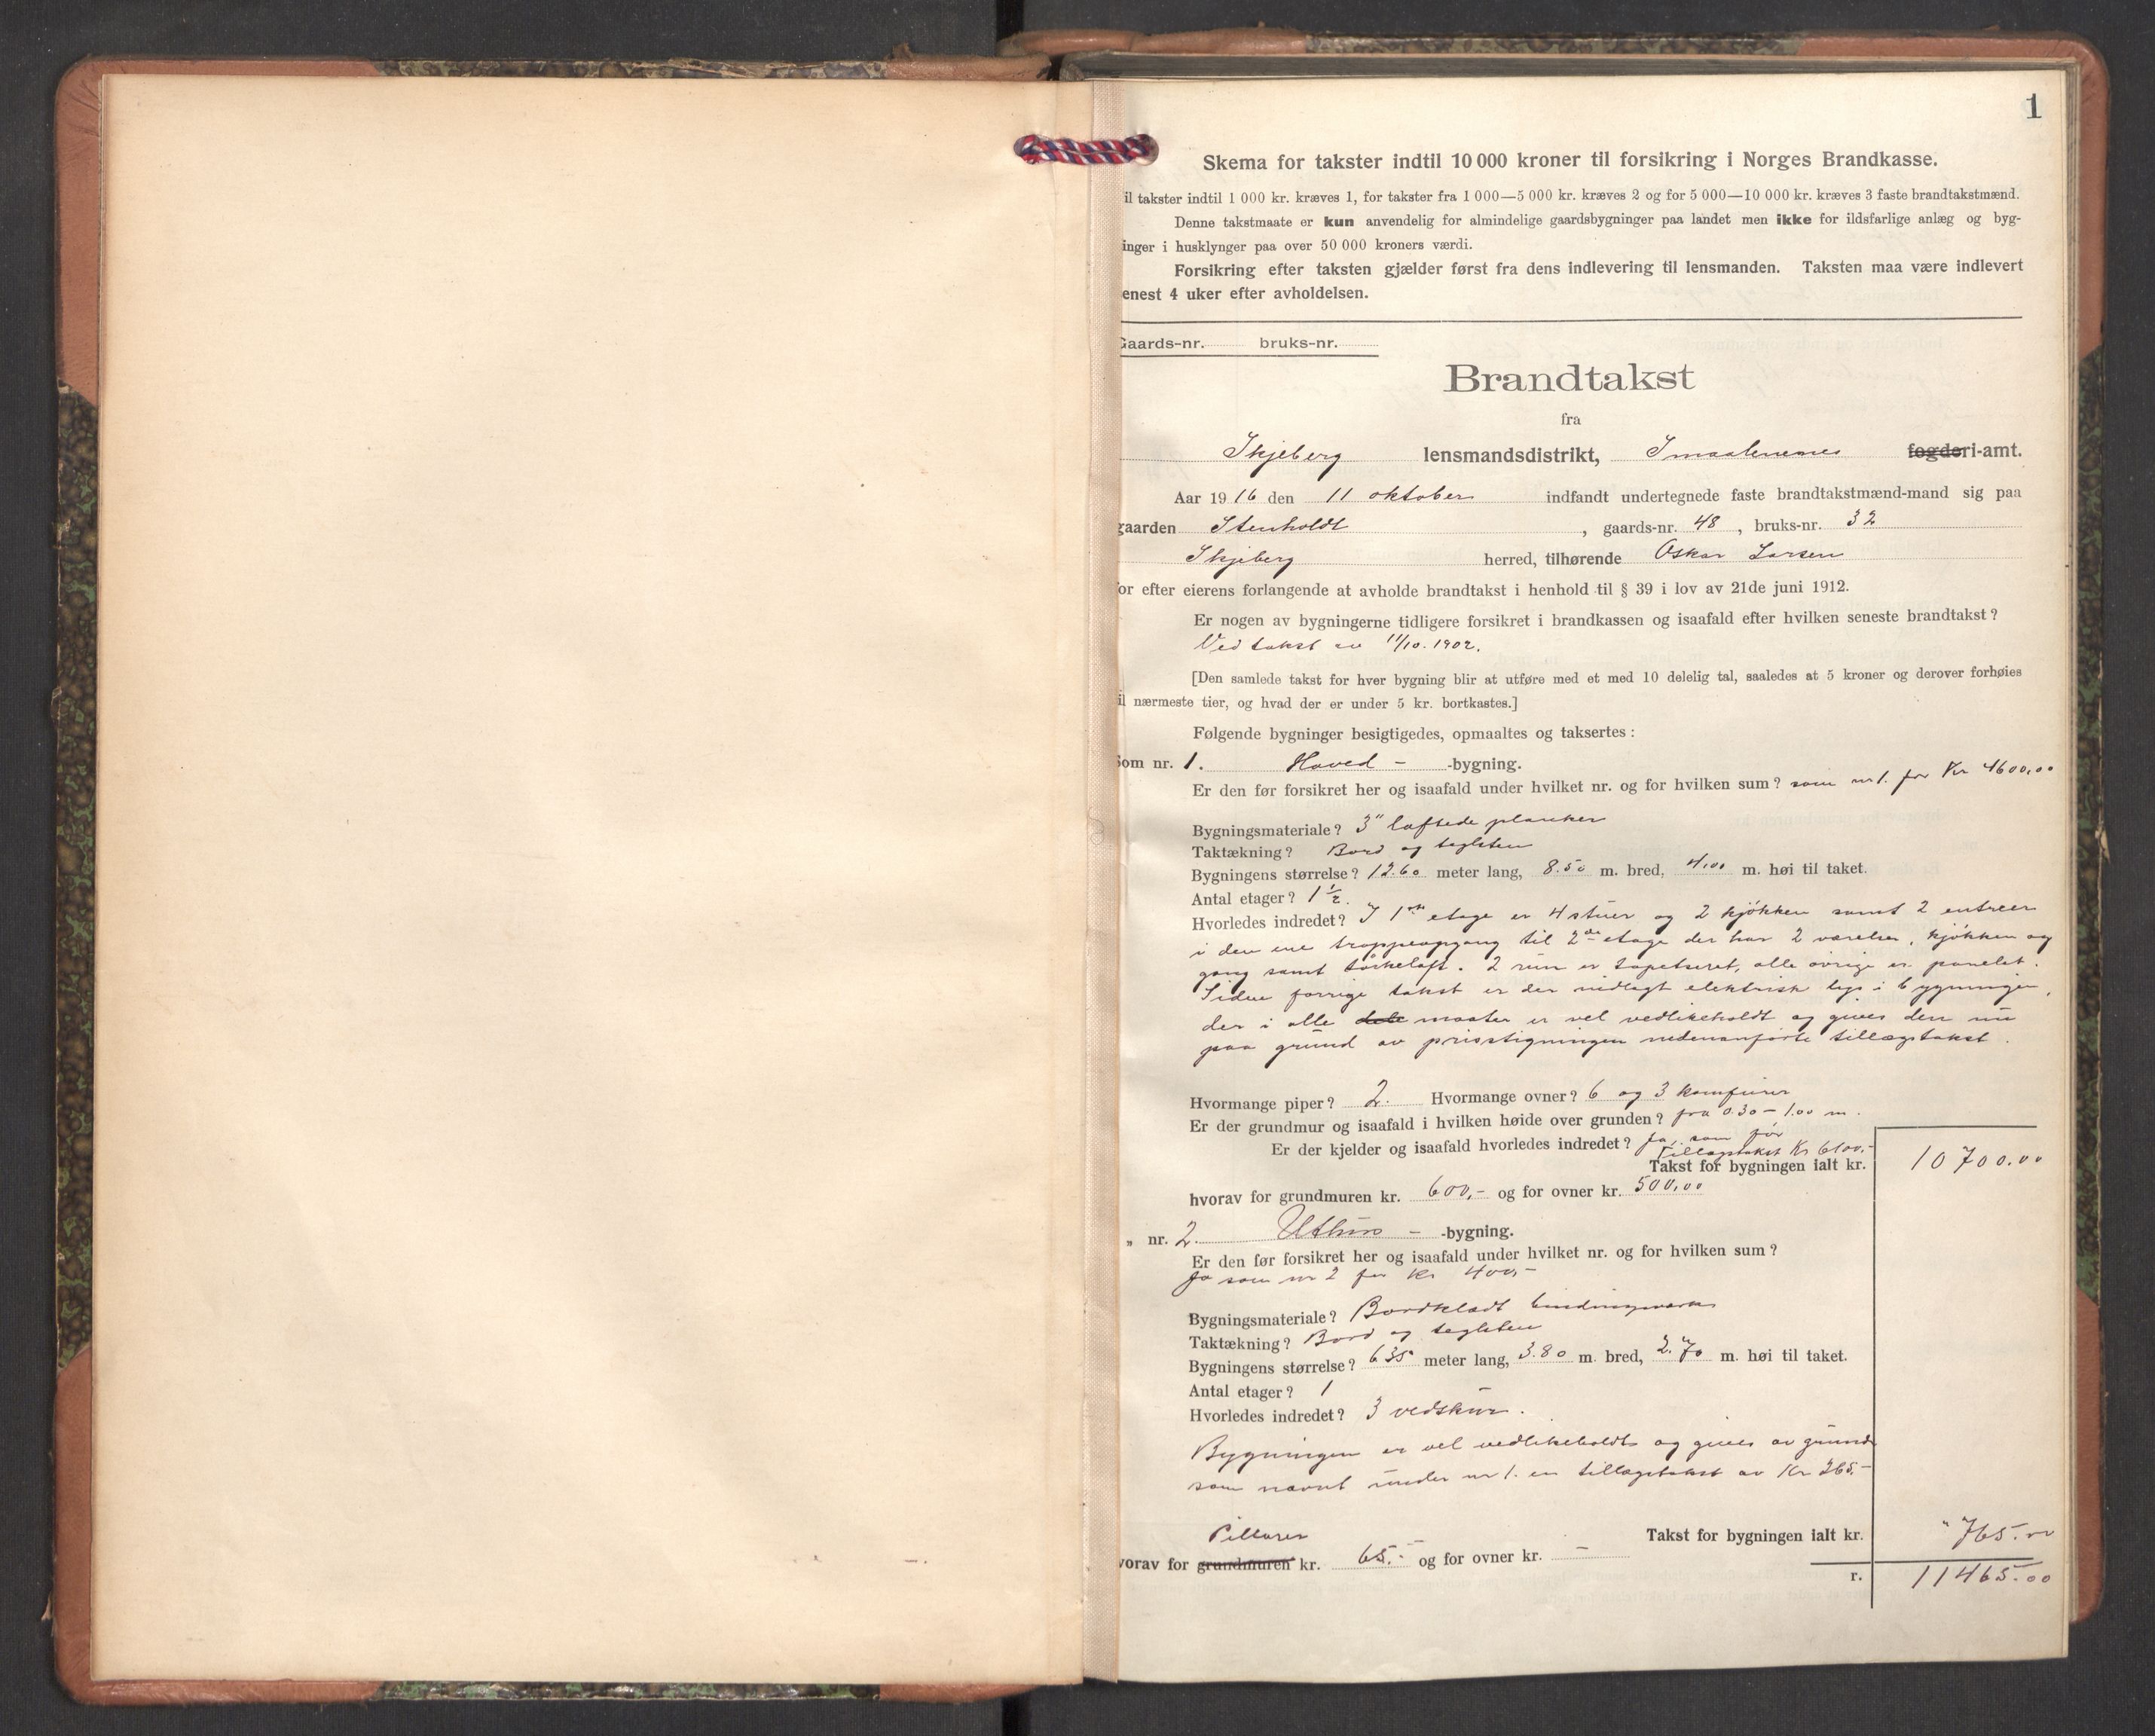 1
Skema for takster indtil 10 000 kroner til forsikring i Norges Brandkasse.
il takster indtil 1 000 kr. kræves 1, for takster fra 1 000—5 000 kr. kræves 2 og for 5 000—10 000 kr. kræves 3 faste brandtakstmænd.
Denne takstmaate er kun anvendelig for almindelige gaardsbygninger paa landet men ikke for ildsfarlige anlæg og byg-
inger i husklynger paa over 50 000 kroners værdi.
Forsikring efter taksten gjælder først fra dens indlevering til lensmanden. Taksten maa være indlevert
enest 4 uker efter avholdelsen.
Gaards-nr. bruks-nr.
Brandtakst
fra
Skjeberg lensmandsdistrikt, Smaalenenes fogderi-amt.
Aar 1916 den 11 oktober indfandt undertegnede faste brandtakstmænd-mand sig paa
gaarden Stenholdt, gaards-nr. 48, bruks-nr. 32
Skjeberg herred, tilhørende Oskar Larsen
for efter eierens forlangende at avholde brandtakst i henhold til § 39 i lov av 21de juni 1912.
Er nogen av bygningerne tidligere forsikret i brandkassen og isaafald efter hvilken seneste brandtakst?
Ved takst av 11/10. 1902.
[Den samlede takst for hver bygning blir at utføre med et med 10 delelig tal, saaledes at 5 kroner og derover forhøies
il nærmeste tier, og hvad der er under 5 kr. bortkastes.]
Følgende bygninger besigtigedes, opmaaltes og taksertes:
Som nr. 1. Hoved - -bygning.
Er den før forsikret her og isaafald under hvilket nr. og for hvilken sum? som nr 1. for Kr 4600,00
Bygningsmateriale? 3" laftede planker
Taktækning? Bord og teglsten
Bygningens størrelse? 12.60 meter lang, 8.50 m. bred, 4.00 m. høi til taket.
Antal etager? 1 1/2.
Hvorledes indredet? I 1ste etage er 4 stuer og 2 kjøkken samt 2 entreer
i den ene trappeopgang til 2den etage der har 2 værelser, kjøkken og
gang samt törkeloft. 2 rum er tapetseret, alle øvrige er panelet.
Siden forrige takst er der indlagt elektrisk lys i bygningen,
der i alle dele maater er vel vedlikeholdt og gives den nu
paa grund av prisstigningen nedenanførte tillægstakst.
Hvormange piper? 2. Hvormange ovner? 6 og 3 komfurer
Er der grundmur og isaafald i hvilken høide over grunden? fra 0.30 - 1.00 m.
Er der kjelder og isaafald hvorledes indredet? Ja, som før
Tillægstakst Kr 6100,-
Takst for bygningen ialt kr. 10700.00
hvorav for grundmuren kr. 600,- og for ovner kr. 500,00
„ nr. 2. Uthus - -bygning.
Er den før forsikret her og isaafald under hvilket nr. og for hvilken sum?
Ja som nr 2 for Kr 400,-
Bygningsmateriale? Bordklædt bindingsværk
Taktækning? Bord og teglsten
Bygningens størrelse? 6 35 meter lang, 3.80 m. bred, 2.70 m. høi til taket.
Antal etager? 1
Hvorledes indredet? 3 vedskur.
Bygningen er vel vedlikeholdt og gives av grund
som nævnt under nr 1. en tillægstakst av Kr 365,-
Pillarer
Takst for bygningen ialt kr. " 765.00
vorav for grundmuren kr. 65.- og for ovner kr. -
r. 11465.00